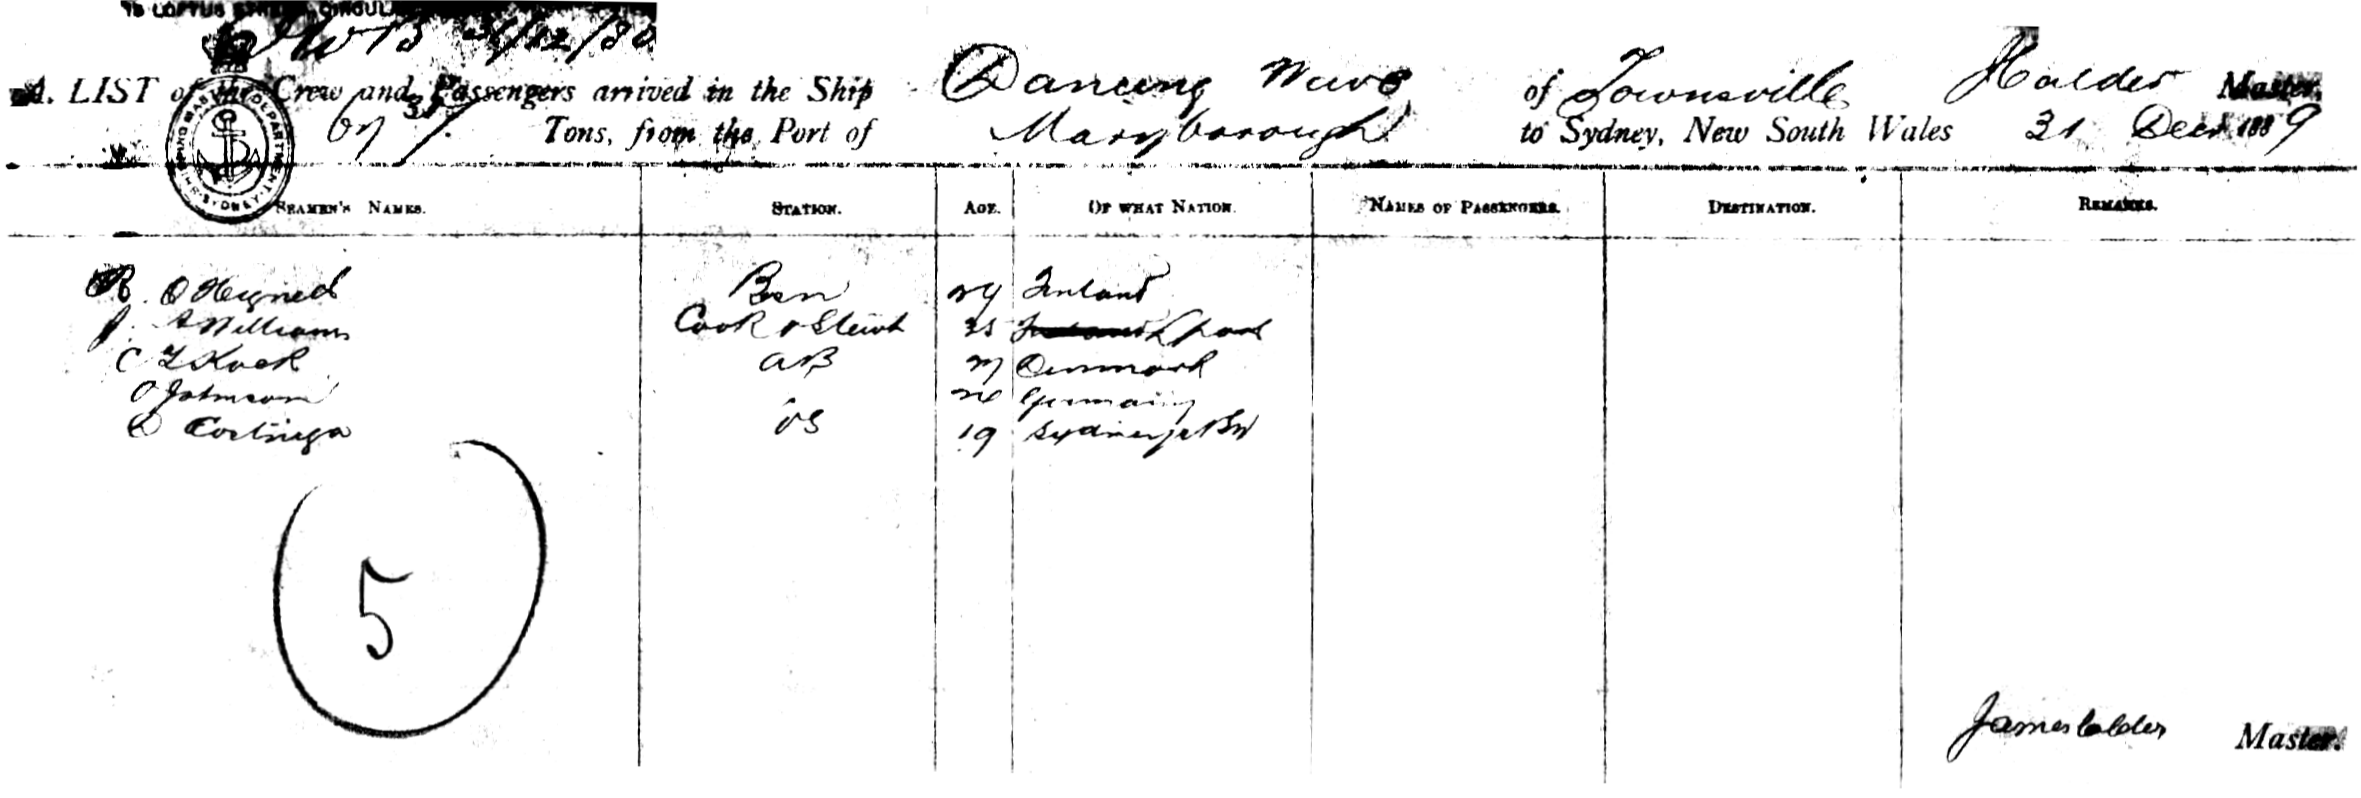 75 LOFTUS STREET, CIRCULAR
31/12/89
A LIST of the Crew and Passengers arrived in the Ship Dancing Wave of Townsville Halder Master,
Tons, from the Port of Maryborough to Sydney, New South Wales 31 Decr 1889
SHIPPING MASTER'S DEPARTMENT SYDNEY
SEAMEN'S NAMES. STATION. AGE. OF WHAT NATION. NAMES OF PASSENGERS. DESTINATION. REMARKS.
R O Hegned Bsn Finland
J. A Williams Cook & Stewd 35
C F Kock AB 27 Denmark
O Johnson 26 Germany
D Cortinga OS 19 Sydney NSW
5
James Calder Master.